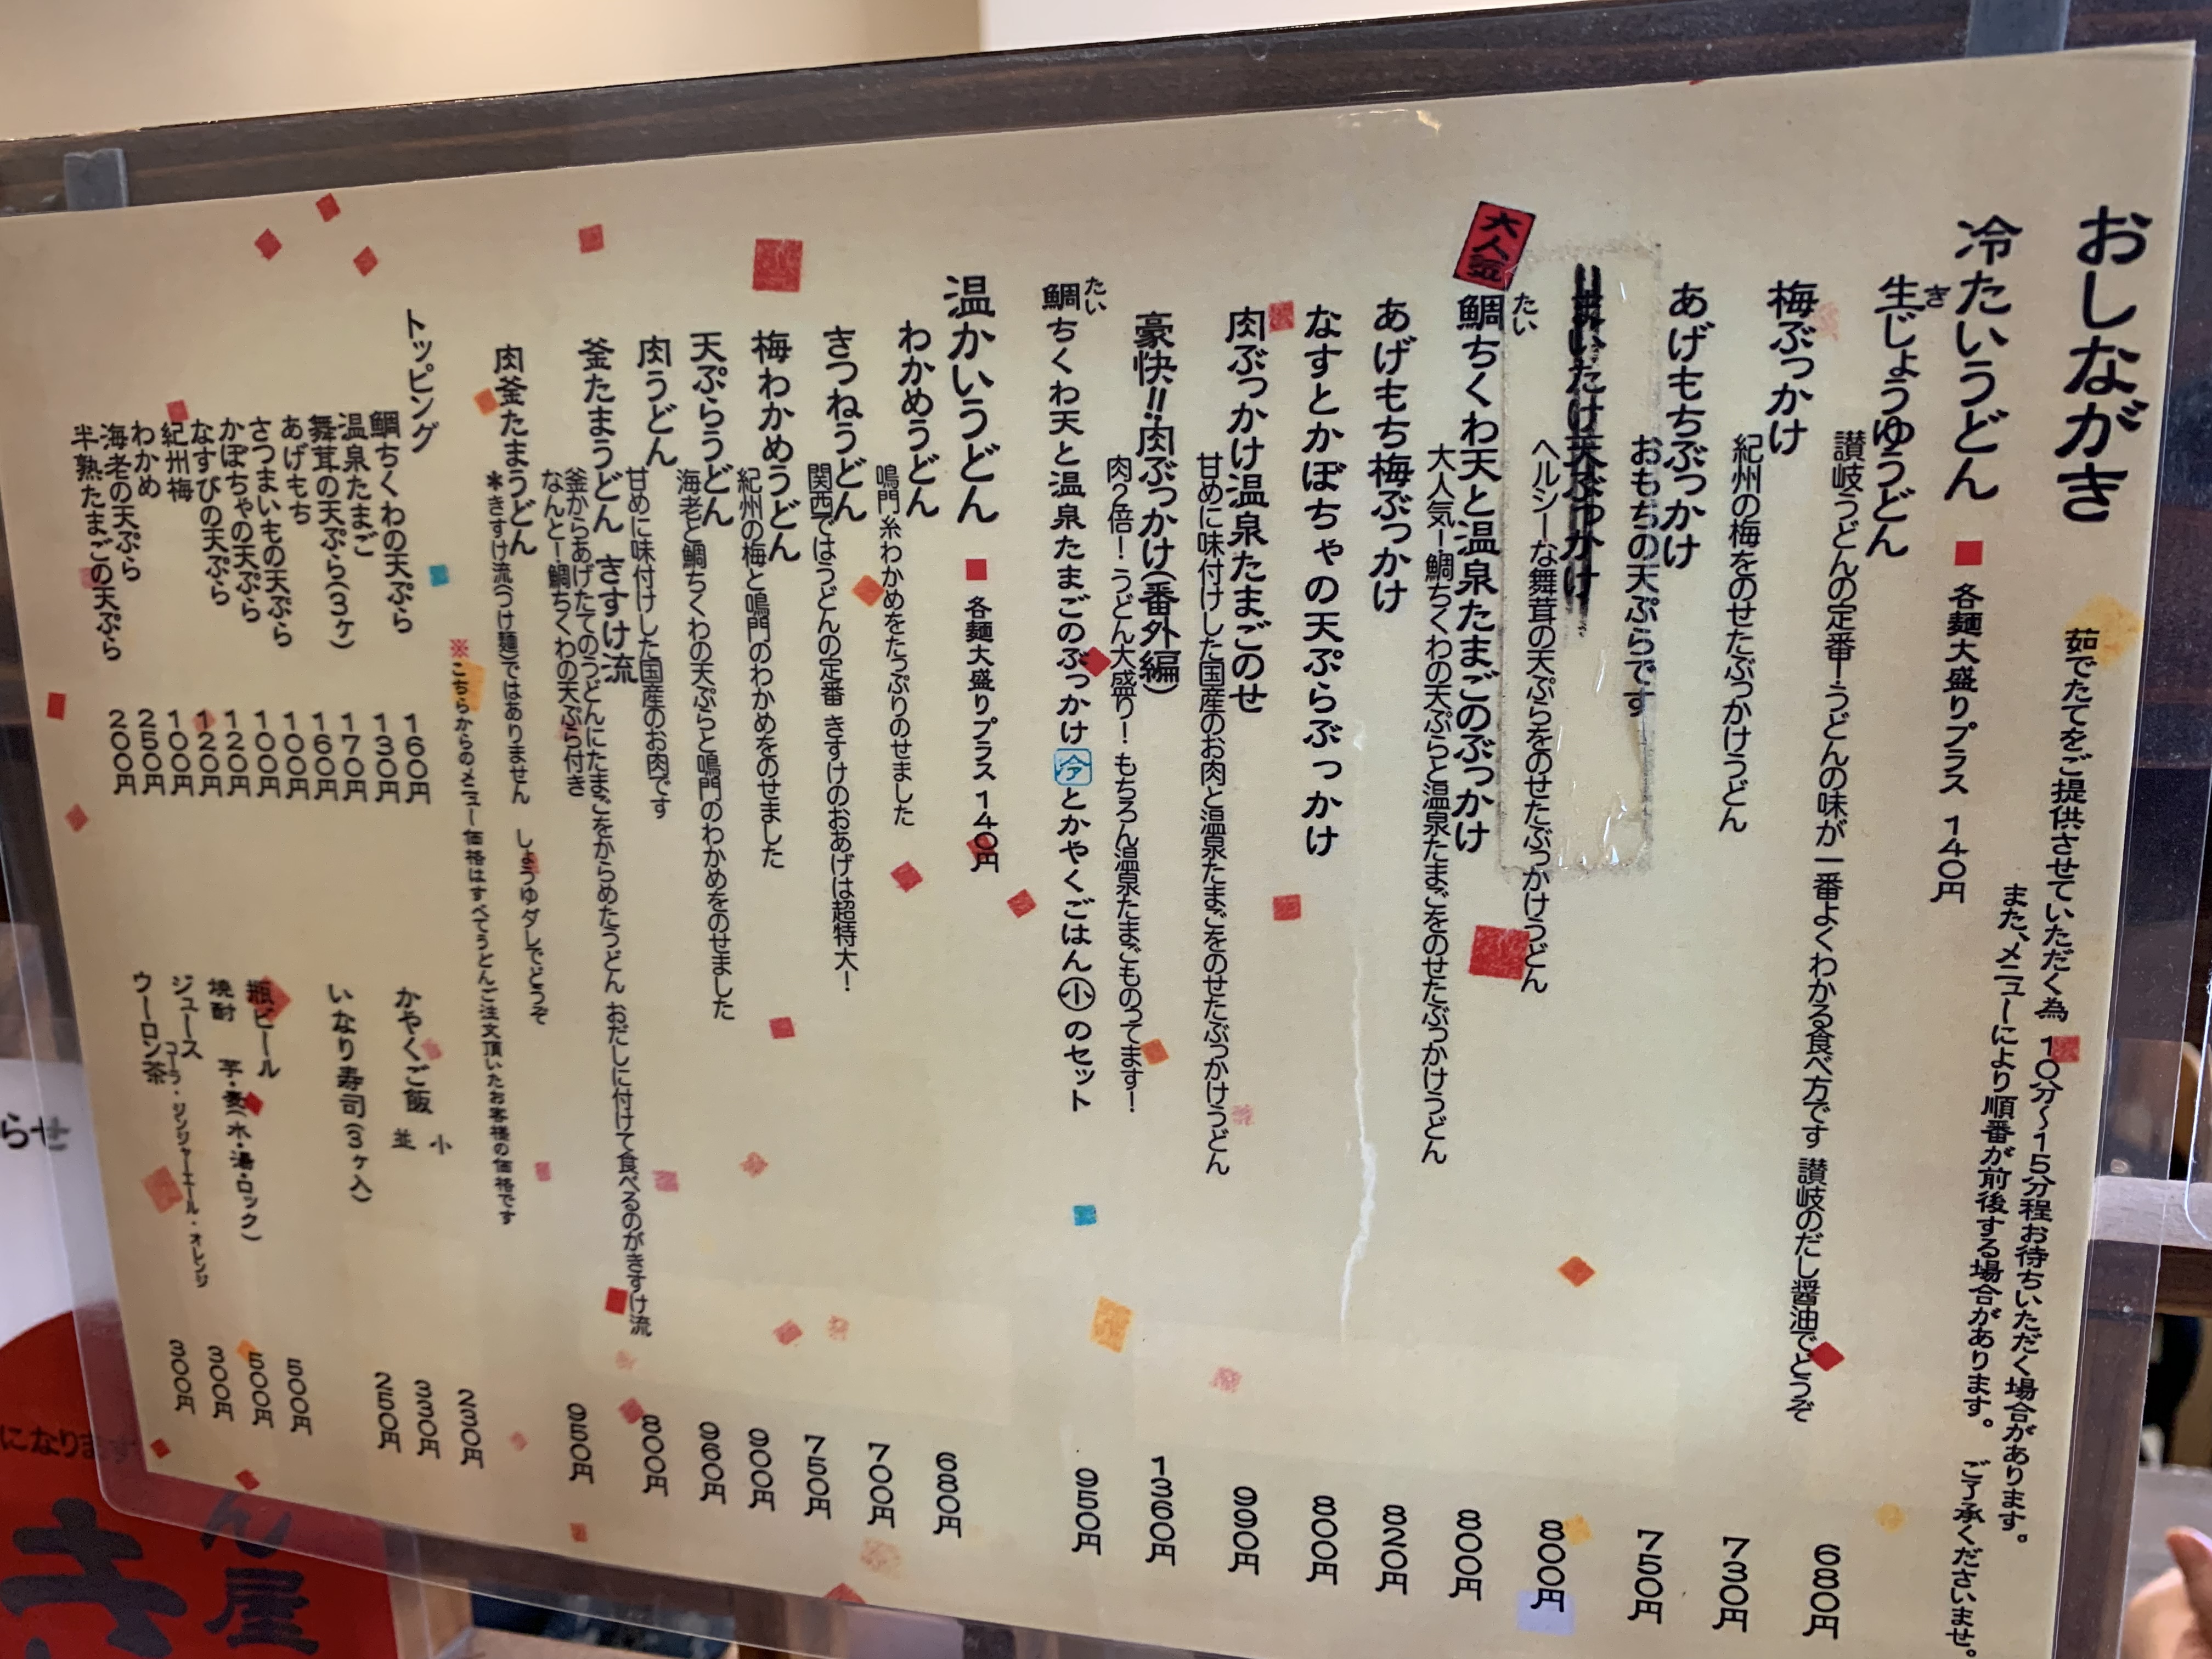 おしながき
茹でたてをご提供させていただく為 10分〜15分程お待ちいただく場合があります。
また、メニューにより順番が前後する場合があります。 ご了承くださいませ。
冷たいうどん ■ 各麺大盛りプラス 140円
生じょうゆうどん 680円
き
讃岐うどんの定番！うどんの味が一番よくわかる食べ方です 讃岐のだし醤油でどうぞ
梅ぶっかけ 730円
紀州の梅をのせたぶっかけうどん
あげもちぶっかけ 750円
おもちの天ぷらです
まいたけ天ぶっかけ 800円
ヘルシーな舞茸の天ぷらをのせたぶっかけうどん
大人気
鯛ちくわ天と温泉たまごのぶっかけ 800円
たい
大人気！鯛ちくわの天ぷらと温泉たまごをのせたぶっかけうどん
あげもち梅ぶっかけ 820円
なすとかぼちゃの天ぷらぶっかけ 800円
肉ぶっかけ温泉たまごのせ 990円
甘めに味付けした国産のお肉と温泉たまごをのせたぶっかけうどん
豪快!!肉ぶっかけ(番外編) 1360円
肉2倍！うどん大盛り！もちろん温泉たまごものってます！
鯛ちくわ天と温泉たまごのぶっかけ冷とかやくごはん小のセット 950円
たい
温かいうどん ■ 各麺大盛りプラス 140円
わかめうどん 680円
鳴門糸わかめをたっぷりのせました
きつねうどん 700円
関西ではうどんの定番 きすけのおあげは超特大！
梅わかめうどん 750円
紀州の梅と鳴門のわかめをのせました
天ぷらうどん 900円
海老と鯛ちくわの天ぷらと鳴門のわかめをのせました
肉うどん 960円
甘めに味付けした国産のお肉です
釜たまうどん きすけ流 800円
釜からあげたてのうどんにたまごをからめたうどん おだしに付けて食べるのがきすけ流
なんと！鯛ちくわの天ぷら付き
肉釜たまうどん 950円
＊きすけ流(つけ麺)ではありません しょうゆダレでどうぞ
※こちらからのメニュー価格はすべてうどんご注文頂いたお客様の価格です
トッピング
鯛ちくわの天ぷら 160円
温泉たまご 130円
舞茸の天ぷら(3ヶ) 170円
あげもち 160円
さつまいもの天ぷら 100円
かぼちゃの天ぷら 100円
なすびの天ぷら 120円
紀州梅 120円
わかめ 100円
海老の天ぷら 250円
半熟たまごの天ぷら 200円
かやくご飯 小 230円
並 330円
いなり寿司(3ヶ入) 250円
瓶ビール 500円
焼酎 芋・麦(水・湯・ロック) 500円
ジュース コーラ・ジンジャーエール・オレンジ 300円
ウーロン茶 300円
らせ
になります
ん屋
き